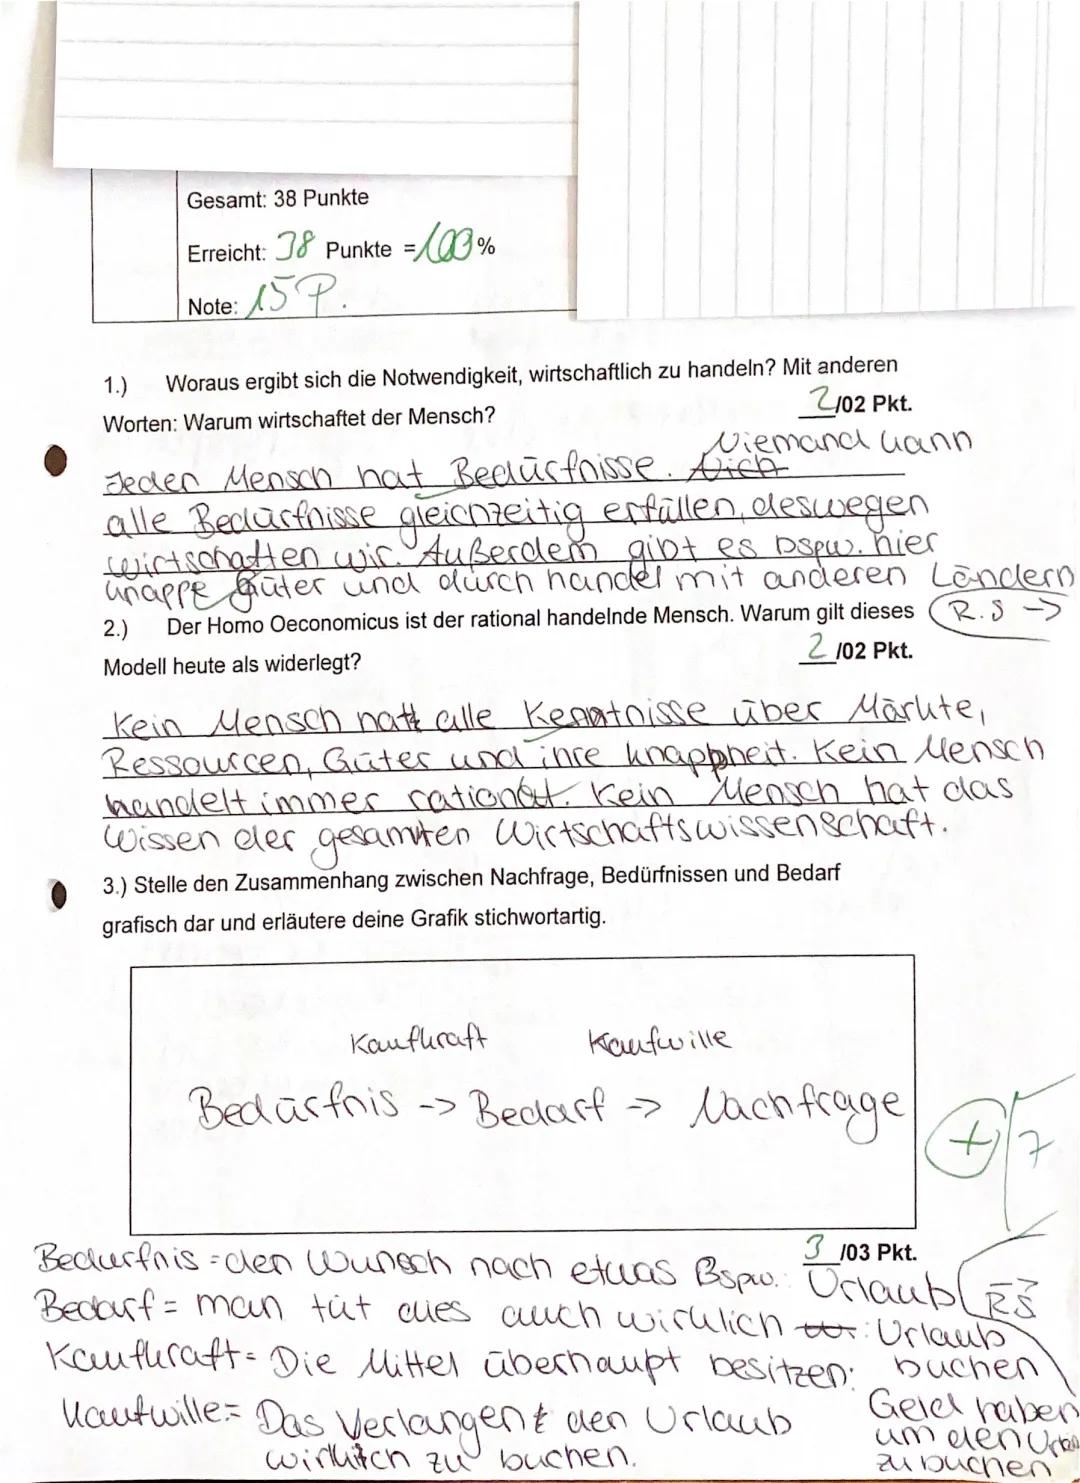 Gesamt: 38 Punkte
Erreicht: 38 Punkte = 100%
Note: 15 P.
1.) Woraus ergibt sich die Notwendigkeit, wirtschaftlich zu handeln? Mit anderen
Worten: Warum wirtschaftet der Mensch? 2/02 Pkt.
Niemand kann
Jeder Mensch hat Bedürfnisse.
alle Bedürfnisse gleichzeitig erfüllen, deswegen
wirtschaften wir. Außerdem gibt es bspw. hier
knappe Güter und durch handel mit anderen Ländern
R.S →
2.) Der Homo Oeconomicus ist der rational handelnde Mensch. Warum gilt dieses
Modell heute als widerlegt? 2/02 Pkt.
Kein Mensch hat alle Kenntnisse über Märkte,
Ressourcen, Güter und ihre knappheit. Kein Mensch
handelt immer rational. Kein Mensch hat das
Wissen der gesamten Wirtschaftswissenschaft.
3.) Stelle den Zusammenhang zwischen Nachfrage, Bedürfnissen und Bedarf
grafisch dar und erläutere deine Grafik stichwortartig.
Kaufkraft Kaufwille
Bedürfnis -> Bedarf -> Nachfrage
+ 7
3/03 Pkt.
Bedürfnis = den Wunsch nach etwas Bspw.: Urlaub
RS
Bedarf = man tut dies auch wirklich : Urlaub
buchen
Kaufkraft = Die Mittel überhaupt besitzen:
Geld haben
um den Urlaub
zu buchen
Kaufwille = Das Verlangen den Urlaub
wirklich zu buchen.